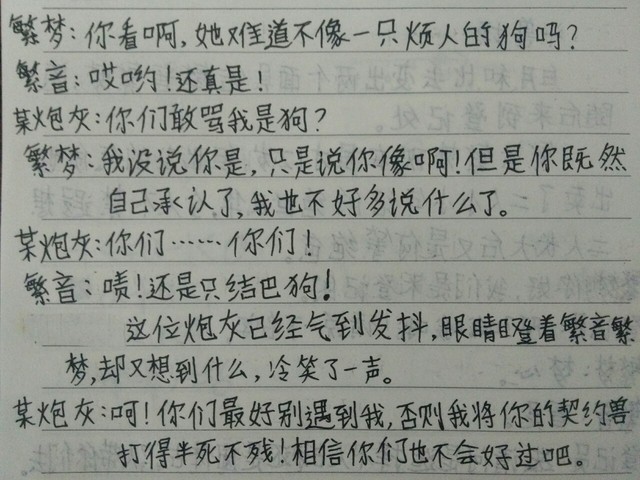 繁梦：你看啊，她难道不像一只烦人的狗吗？
繁音：哎哟！还真是！
某炮灰：你们敢骂我是狗？
繁梦：我没说你是，只是说你像啊！但是你既然
自己承认了，我也不好多说什么了。
某炮灰：你们……你们！
繁音：啧！还是只结巴狗！
这位炮灰已经气到发抖，眼睛瞪着繁音繁
梦，却又想到什么，冷笑了一声。
某炮灰：呵！你们最好别遇到我，否则我将你的契约兽
打得半死不残！相信你们也不会好过吧。